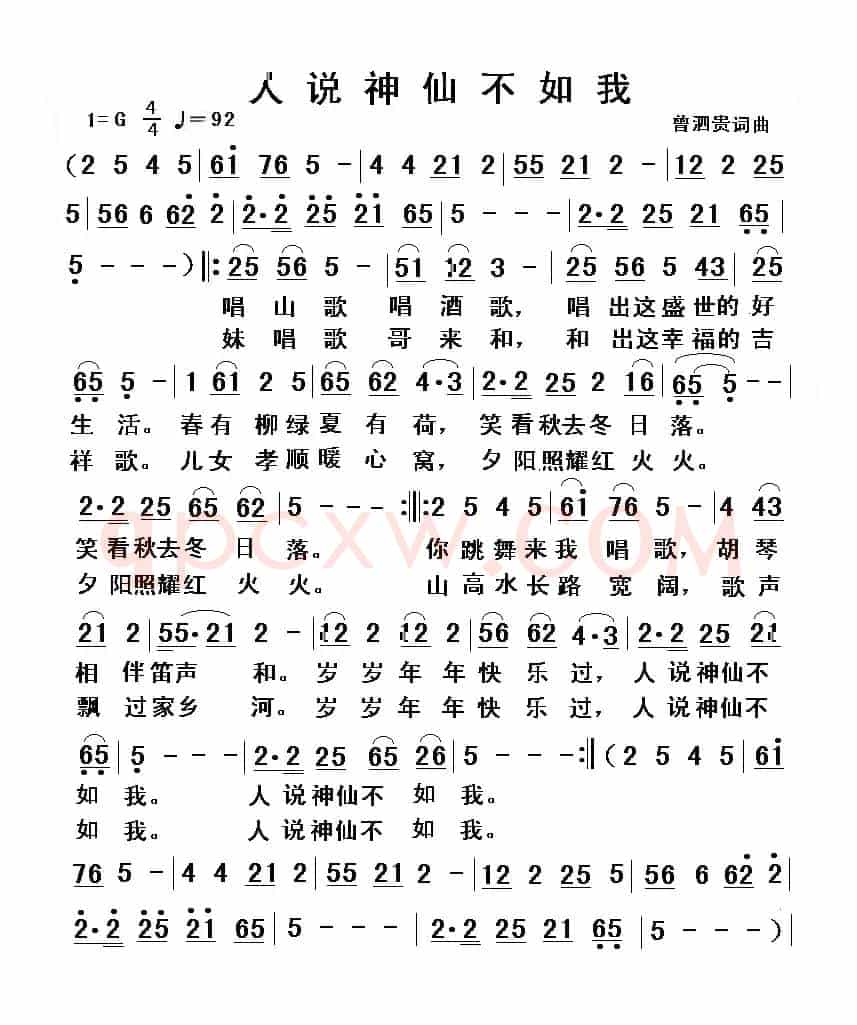 人说神仙不如我
1=G 4/4 ♩=92
曾泗贵词曲
(2 5 4 5 | 61 76 5 - | 4 4 21 2 | 55 21 2 - | 12 2 25
5 | 56 6 62 2 | 2·2 25 21 65 | 5 - - - | 2·2 25 21 65 |
5 - - - ) ‖: 25 56 5 - | 51 12 3 - | 25 56 5 43 | 25
唱山歌唱酒歌，唱出这盛世的好
妹唱歌哥来和，和出这幸福的吉
65 5 - | 1 61 2 5 | 65 62 4·3 | 2·2 25 2 16 | 65 5 - - |
生活。春有柳绿夏有荷，笑看秋去冬日落。
祥歌。儿女孝顺暖心窝，夕阳照耀红火火。
2·2 25 65 62 | 5 - - - :‖: 2 5 4 5 | 61 76 5 - | 4 43
笑看秋去冬日落。你跳舞来我唱歌，胡琴
夕阳照耀红火火。山高水长路宽阔，歌声
qpcxw.com
21 2 | 55·21 2 - | 12 2 12 2 | 56 62 4·3 | 2·2 25 21
相伴笛声和。岁岁年年快乐过，人说神仙不
飘过家乡河。岁岁年年快乐过，人说神仙不
65 | 5 - - - | 2·2 25 65 26 | 5 - - - :‖ (2 5 4 5 | 61
如我。人说神仙不如我。
如我。人说神仙不如我。
76 5 - | 4 4 21 2 | 55 21 2 - | 12 2 25 5 | 56 6 62 2 |
2·2 25 21 65 | 5 - - - | 2·2 25 21 65 | 5 - - - ) |